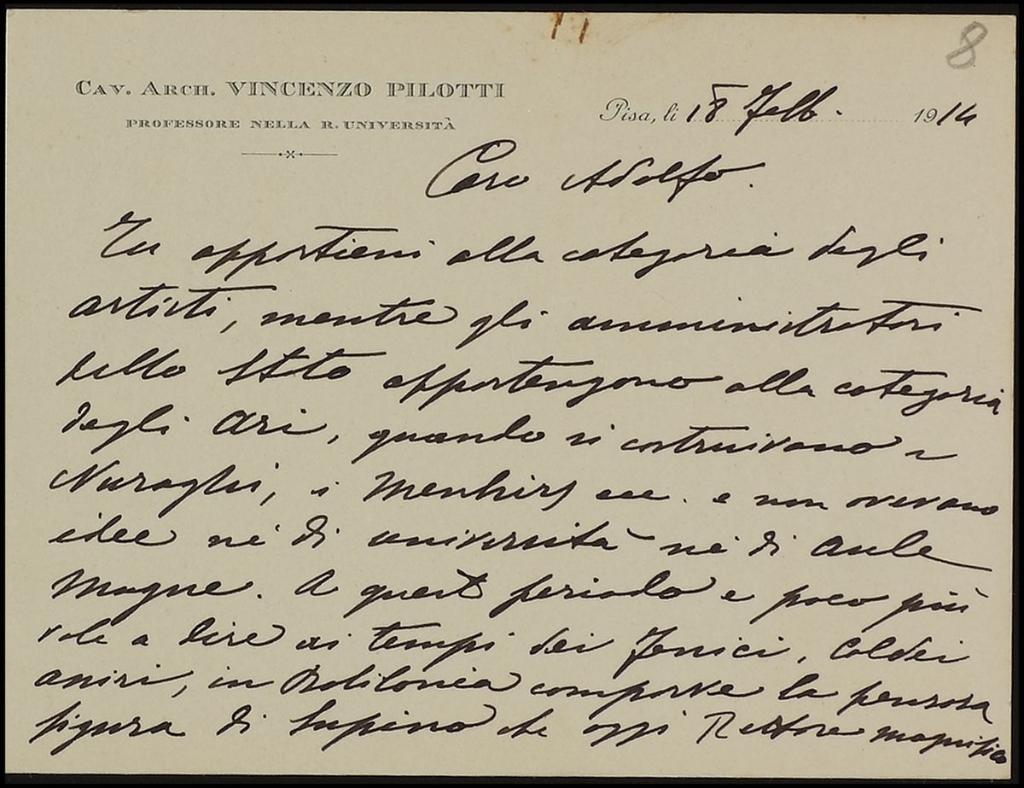 8
CAV. ARCH. VINCENZO PILOTTI
PROFESSORE NELLA R. UNIVERSITÀ
Pisa, li 18 Febb. 1914
Caro Adolfo.
Tu appartieni alla categoria degli
artisti, mentre gli amministratori
dello Stato appartengono alla categoria
degli Ari, quando si costruivano
Nuraghi, i Menhirs ecc. e non avevano
idee nè di università nè di aule
magne. A quest periodo e poco più
vale a dire ai tempi dei Fenici, Caldei
assiri, in Babilonia comparve la pensosa
figura di Supino che oggi Rettore magnifico